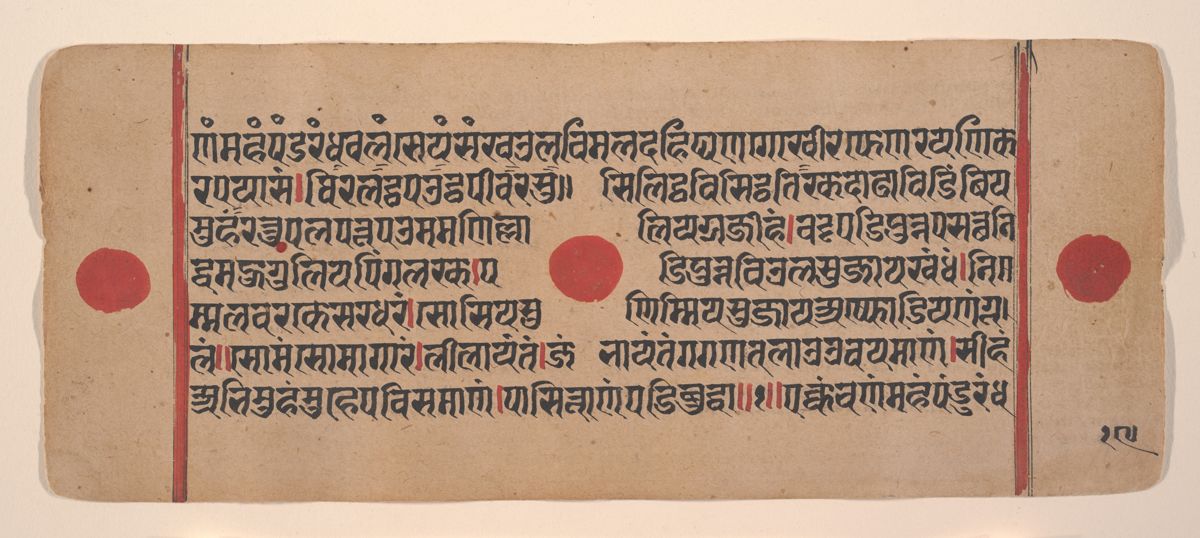 णंमहंपंडुरंधवलंसेयंसंखउलविमलदहिघणगोखीरफेणरयणिक
रपयासं।थिरलट्ठपउट्ठपीवरसु॥ सिलिट्ठविसिट्ठतिरकदाढाविडंबिय
मुहंरत्तुपलपत्तपउममणिल्ला लियग्गजीहं।वट्टपडिपुन्नपसन्नति
पिंगल प डिपुन्नविउलसुजायखंधं।निम
म्मलवरकेसरधरं।सासियसु णिम्मियसुजायअप्फोडियणंगू
लं॥सोमंसोमागारं।लीलायंतं।जं भायंतंगगणतलाउउवयमाणं।सीहं
अतिमुहंमुहेपविसमाणं।पासित्ताणंपडिबुद्धा॥१॥एक्कंचणंमहंपंडुरंध